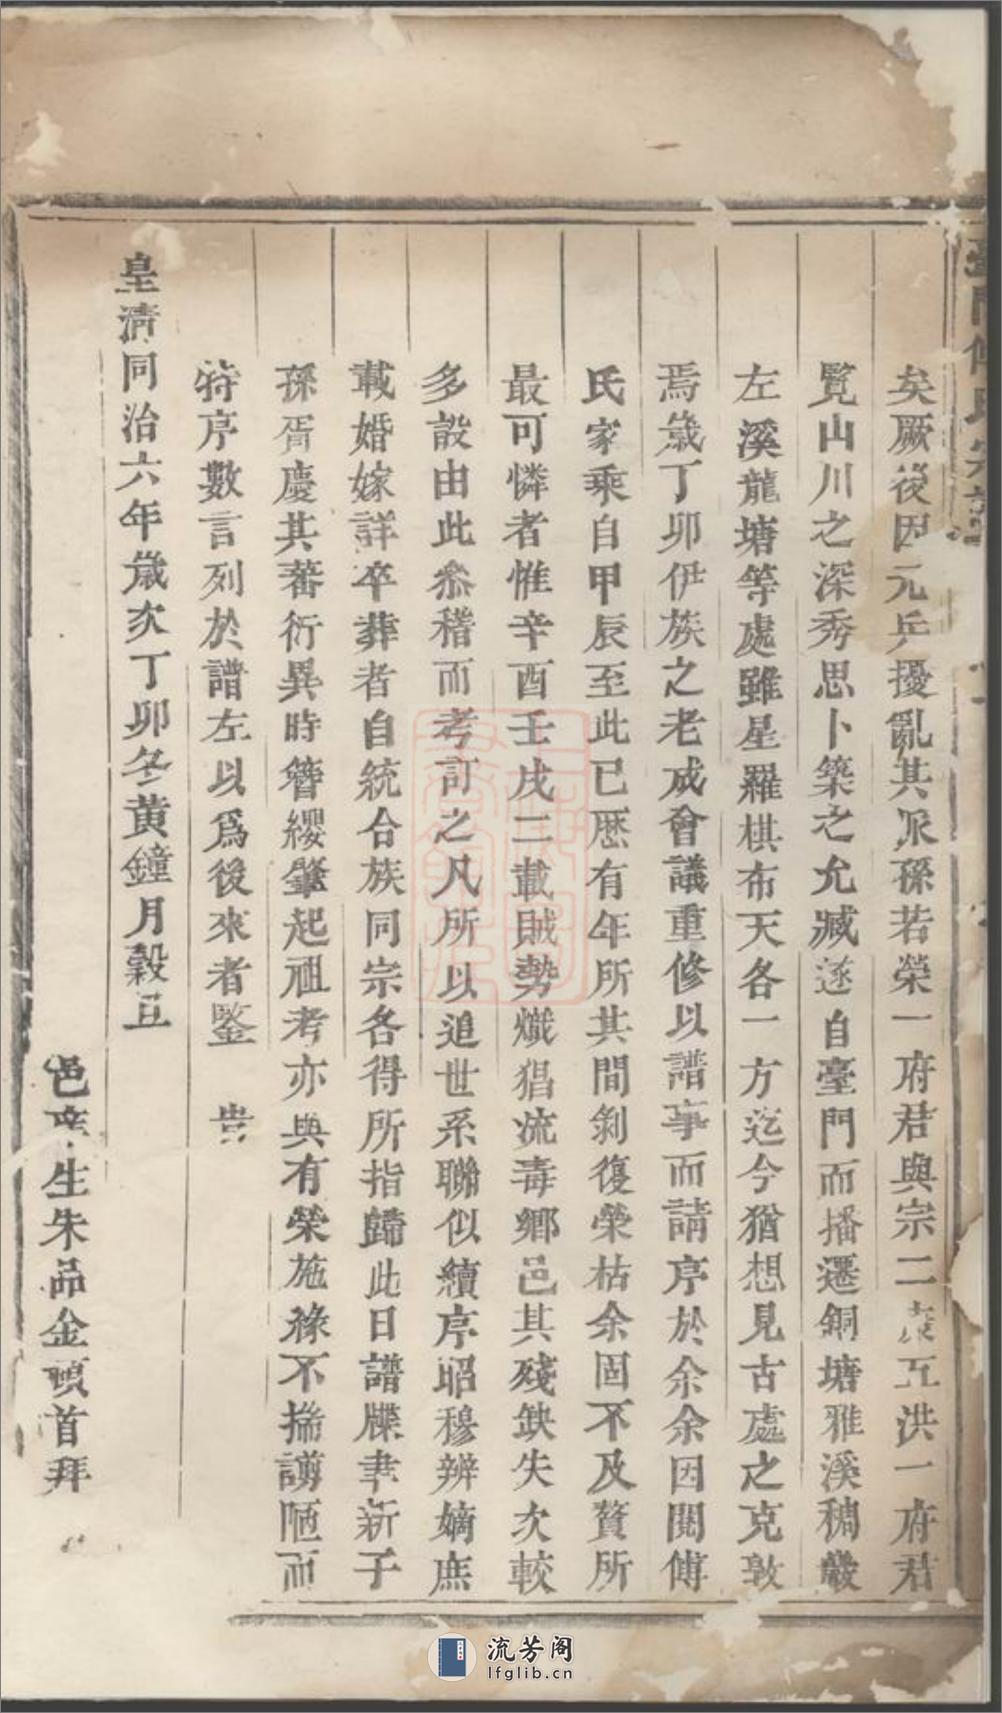 臺門傅氏宗譜
矣厥後因元兵擾亂其派孫若榮一府君與宗二 五洪一府君
覽山川之深秀思卜築之允臧遂自臺門而播遷銅塘雅溪稠巖
左溪龍塘等處雖星羅棋布天各一方迄今猶想見古處之克敦
焉歲丁卯伊族之老成會議重修以譜事而請序於余余因閱傅
氏家乘自甲辰至此已歷有年所其間剝復榮枯余固不及贅所
最可憐者惟辛酉壬戌二載賊勢熾猖流毒鄉邑其殘缺失次較
多設由此叅稽而考訂之凡所以追世系聯似續序昭穆辨嫡庶
載婚嫁詳卒葬者自統合族同宗各得所指歸此日譜牒聿新子
孫胥慶其蕃衍異時簪纓肇起祖考亦與有榮施祿不揣謭陋而
特序數言列於譜左以爲後來者鑒 旹
皇清同治六年歲次丁卯冬黃鐘月穀旦
邑庠生朱品金頓首拜
流芳阁
lfglib.cn